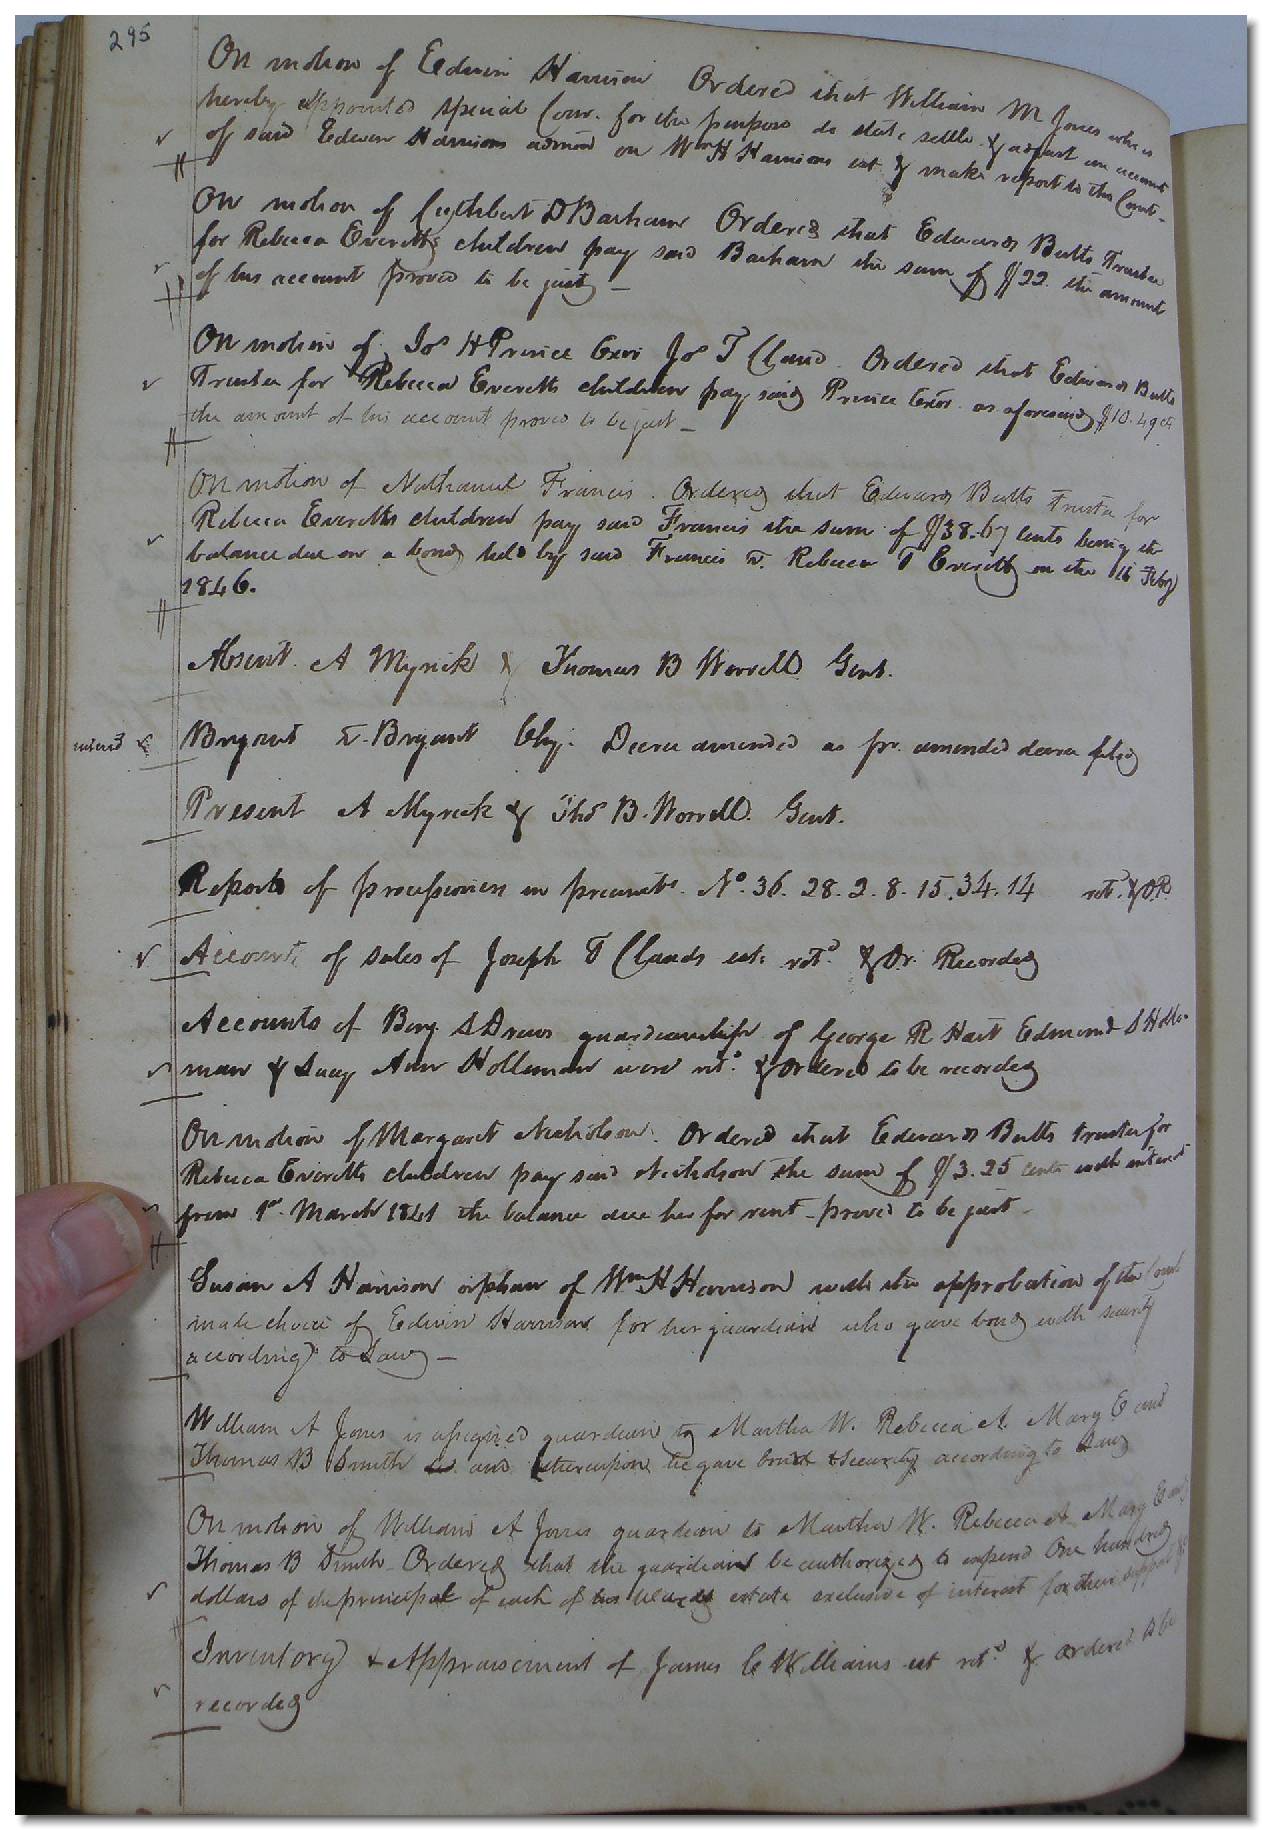 295
On motion of Edwin Harrison Ordered that William M Jones who is
hereby appointed special Com. for the purpose to state settle & adjust an account
of said Edwin Harrisons admor on Wm H Harrisons est & make report to this Court -
On motion of Cuthbert D Barham Ordered that Edward Butts Trustee
for Rebecca Everetts children pay said Barham the sum of $22. the amount
of his account proved to be just -
On motion of Jos H Prince Exor Jos T Claud. Ordered that Edward Butts
Trustee for Rebecca Everetts children pay said Prince Exor. as aforesaid $10.49 cts
the amount of his account proved to be just -
On motion of Nathaniel Francis. Ordered that Edward Butts Trustee for
Rebecca Everetts children pay said Francis the sum of $38.67 cents being the
balance due on a bond held by said Francis v. Rebecca T Everett on the 16 Feby
1846.
Absent. A Myrick & Thomas B Worrell Gent.
Bryant v. Bryant Chy. Decree amended as pr. amended decree filed
Present A Myrick & Thos B. Worrell. Gent.
Reports of processioners in precincts. No. 36. 28. 2. 8. 15. 34. 14 retd. & O.R.
Accounts of sales of Joseph T Clauds est. retd. & Or. Recorded
Accounts of Benj. D Drews guardianship of George R Hart Edmund D Holle-
man & Ann Holleman were retd. & Ordered to be recorded
On motion of Margaret Nicholson. Ordered that Edward Butts trustee for
Rebecca Everetts children pay said Nicholson the sum of $3.25 cents with interest
from 1st. March 1841 the balance due her for rent - proved to be just -
Susan A Harrison orphan of Wm H Harrison with the approbation of the Court
made choice of Edwin Harrison for her guardian who gave bond with security
according to Law -
William A Jones is assigned guardian to Martha W. Rebecca A. Mary E and
Thomas B Smith and thereupon he gave bond & security according to Law
On motion of William A Jones guardian to Martha W. Rebecca A. Mary E and
Thomas B Smith - Ordered that the guardian be authorized to expend One hundred
dollars of the principal of each of his wards estate exclusive of interest for their support &c
Inventory & Appraisement of James C Williams est retd. & ordered to be
recorded